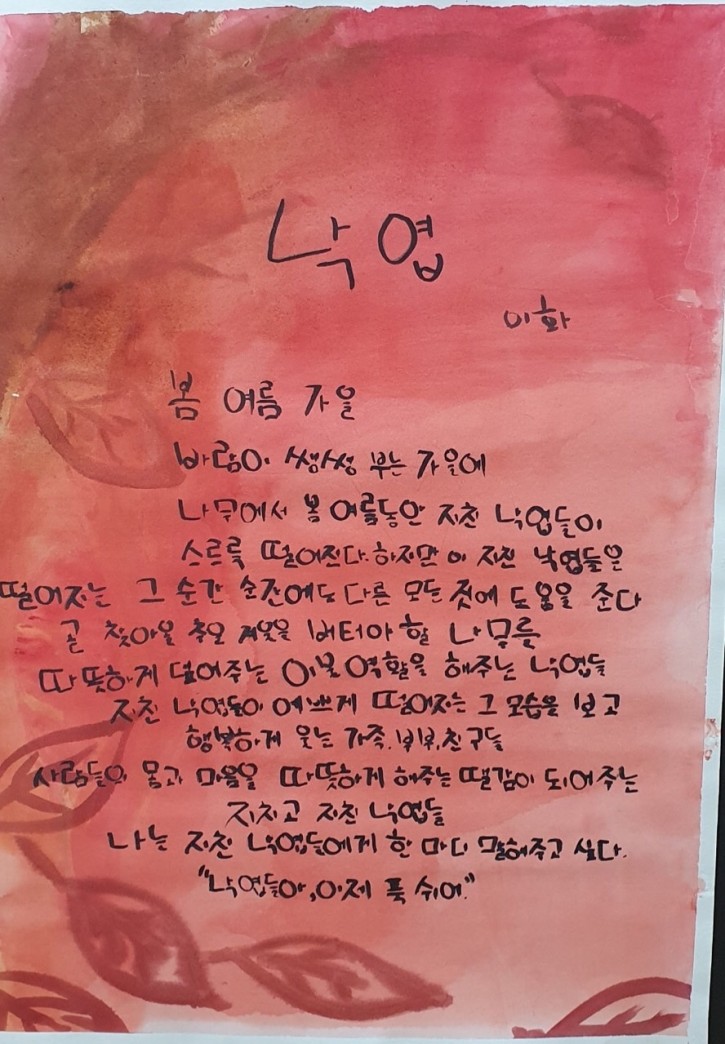 낙엽
이화
봄 여름 가을
바람이 쌩쌩 부는 가을에
나무에서 봄 여름동안 지친 낙엽들이
스르륵 떨어진다. 하지만 이 지친 낙엽들은
떨어지는 그 순간 순간에도 다른 모든 것에 도움을 준다
곧 찾아올 추운 겨울을 버텨야 할 나무를
따뜻하게 덮어주는 이불 역할을 해주는 낙엽들
지친 낙엽들이 예쁘게 떨어지는 그 모습을 보고
행복하게 웃는 가족, 부부, 친구들
사람들의 몸과 마음을 따뜻하게 해주는 땔감이 되어주는
지치고 지친 낙엽들
나는 지친 낙엽들에게 한 마디 말해주고 싶다.
"낙엽들아, 이제 푹 쉬어."